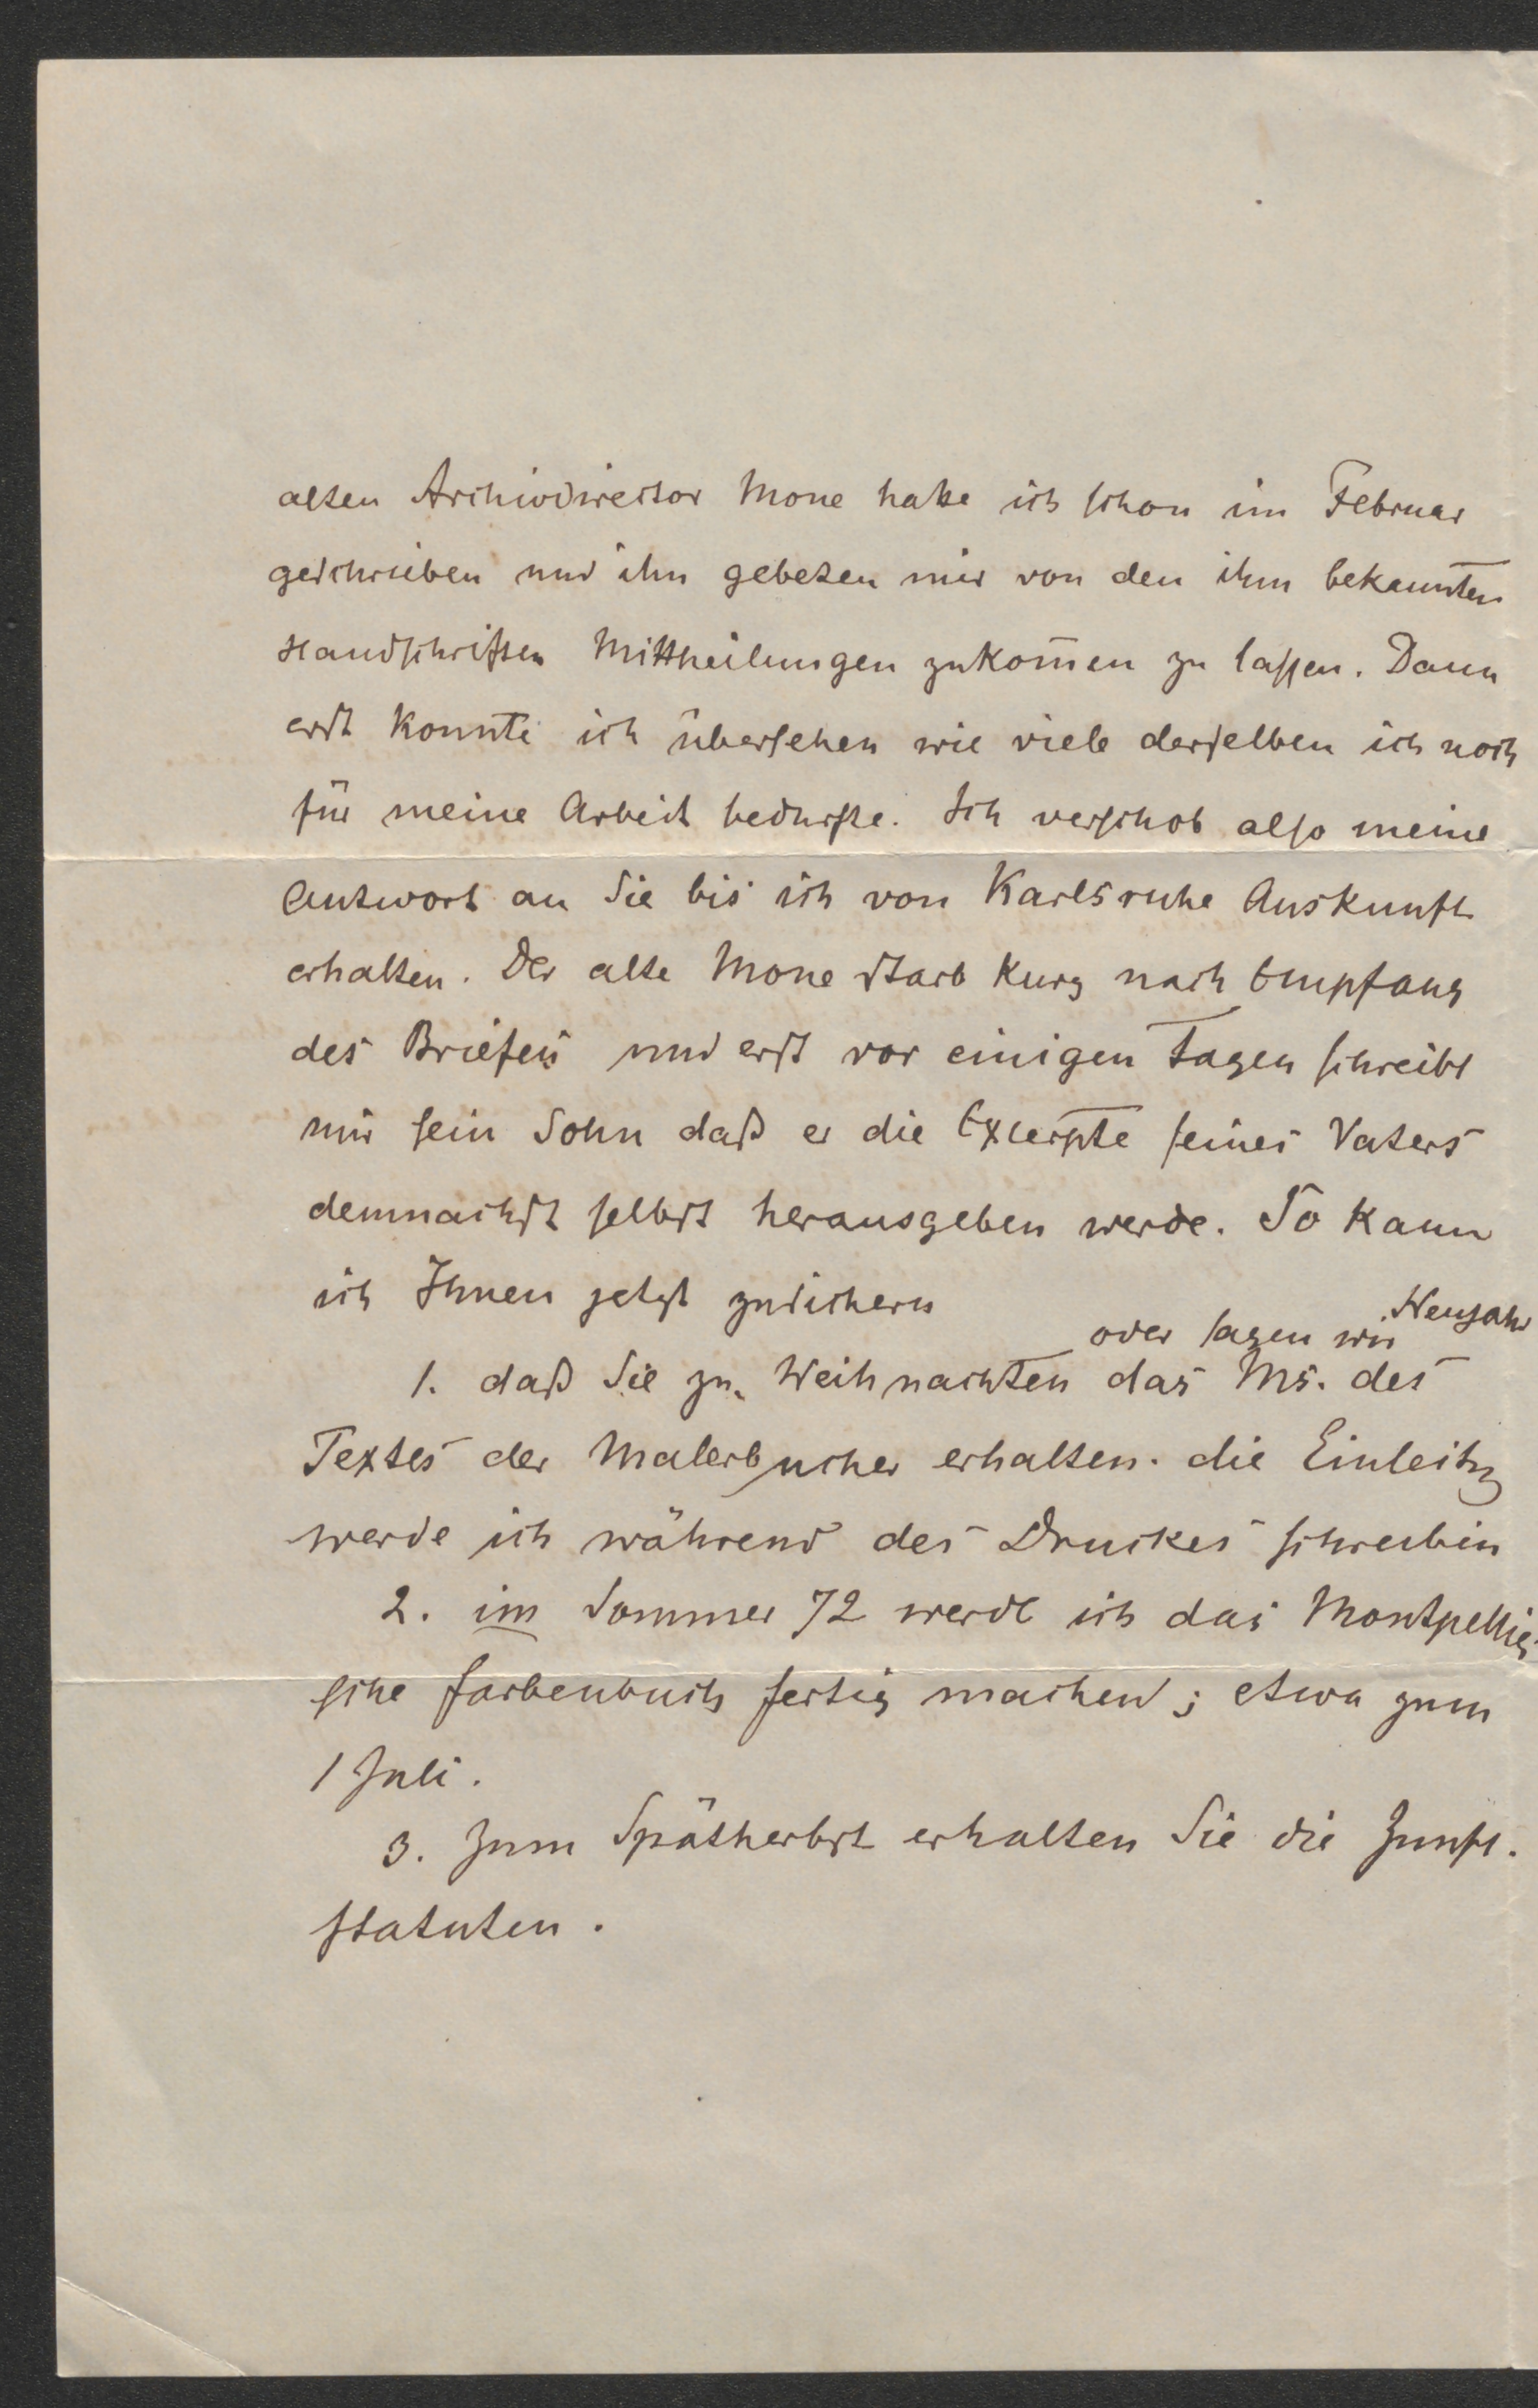 alten Archivdirector Mone hatte ich schon im Februar
geschrieben und ihn gebeten mir von den ihm bekannten
Handschriften Mittheilungen zukom̄en zu lassen. Dann
erst konnte ich übersehen wie viele derselben ich noch
für meine Arbeit bedurfte. Ich verschob also meine
Antwort an Sie bis ich von Karlsruhe Auskunft
erhalten. Der alte Mone starb kurz nach Empfang
des Briefes und erst vor einigen Tagen schreibt
mir sein Sohn daß er die Excerpte seines Vaters
demnachst selbst herausgeben werde. So kann
ich Ihnen jetzt zusichern
oder sagen wir Neujahr
1. daß Sie zu Weihnachten das Ms. des
Textes der Malerbucher erhalten. die Einleitg
werde ich während des Druckes schreiben
2. im Sommer 72 werde ich das Montpellier
sche Farbenbuch fertig machen; etwa zum
1 Juli.
3. Zum Spätherbst erhalten Sie die Zunft.
statuten.